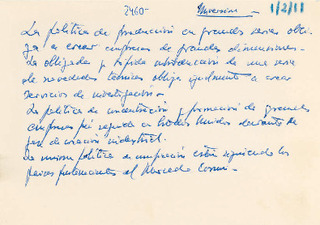 2460- Inversión 1/2/11
La política de producción en grandes series obli-
ga a crear empresas de grandes dimensiones.-
La obligada y rápida introducción de una serie
de novedades técnicas obliga igualmente a crear
servicios de investigación.-
La política de concentración y formación de grandes
empresas fué seguida en Estados Unidos durante
fase de creación industrial.
La misma política de están siguiendo los
países pertenecientes al Mercado Común.-